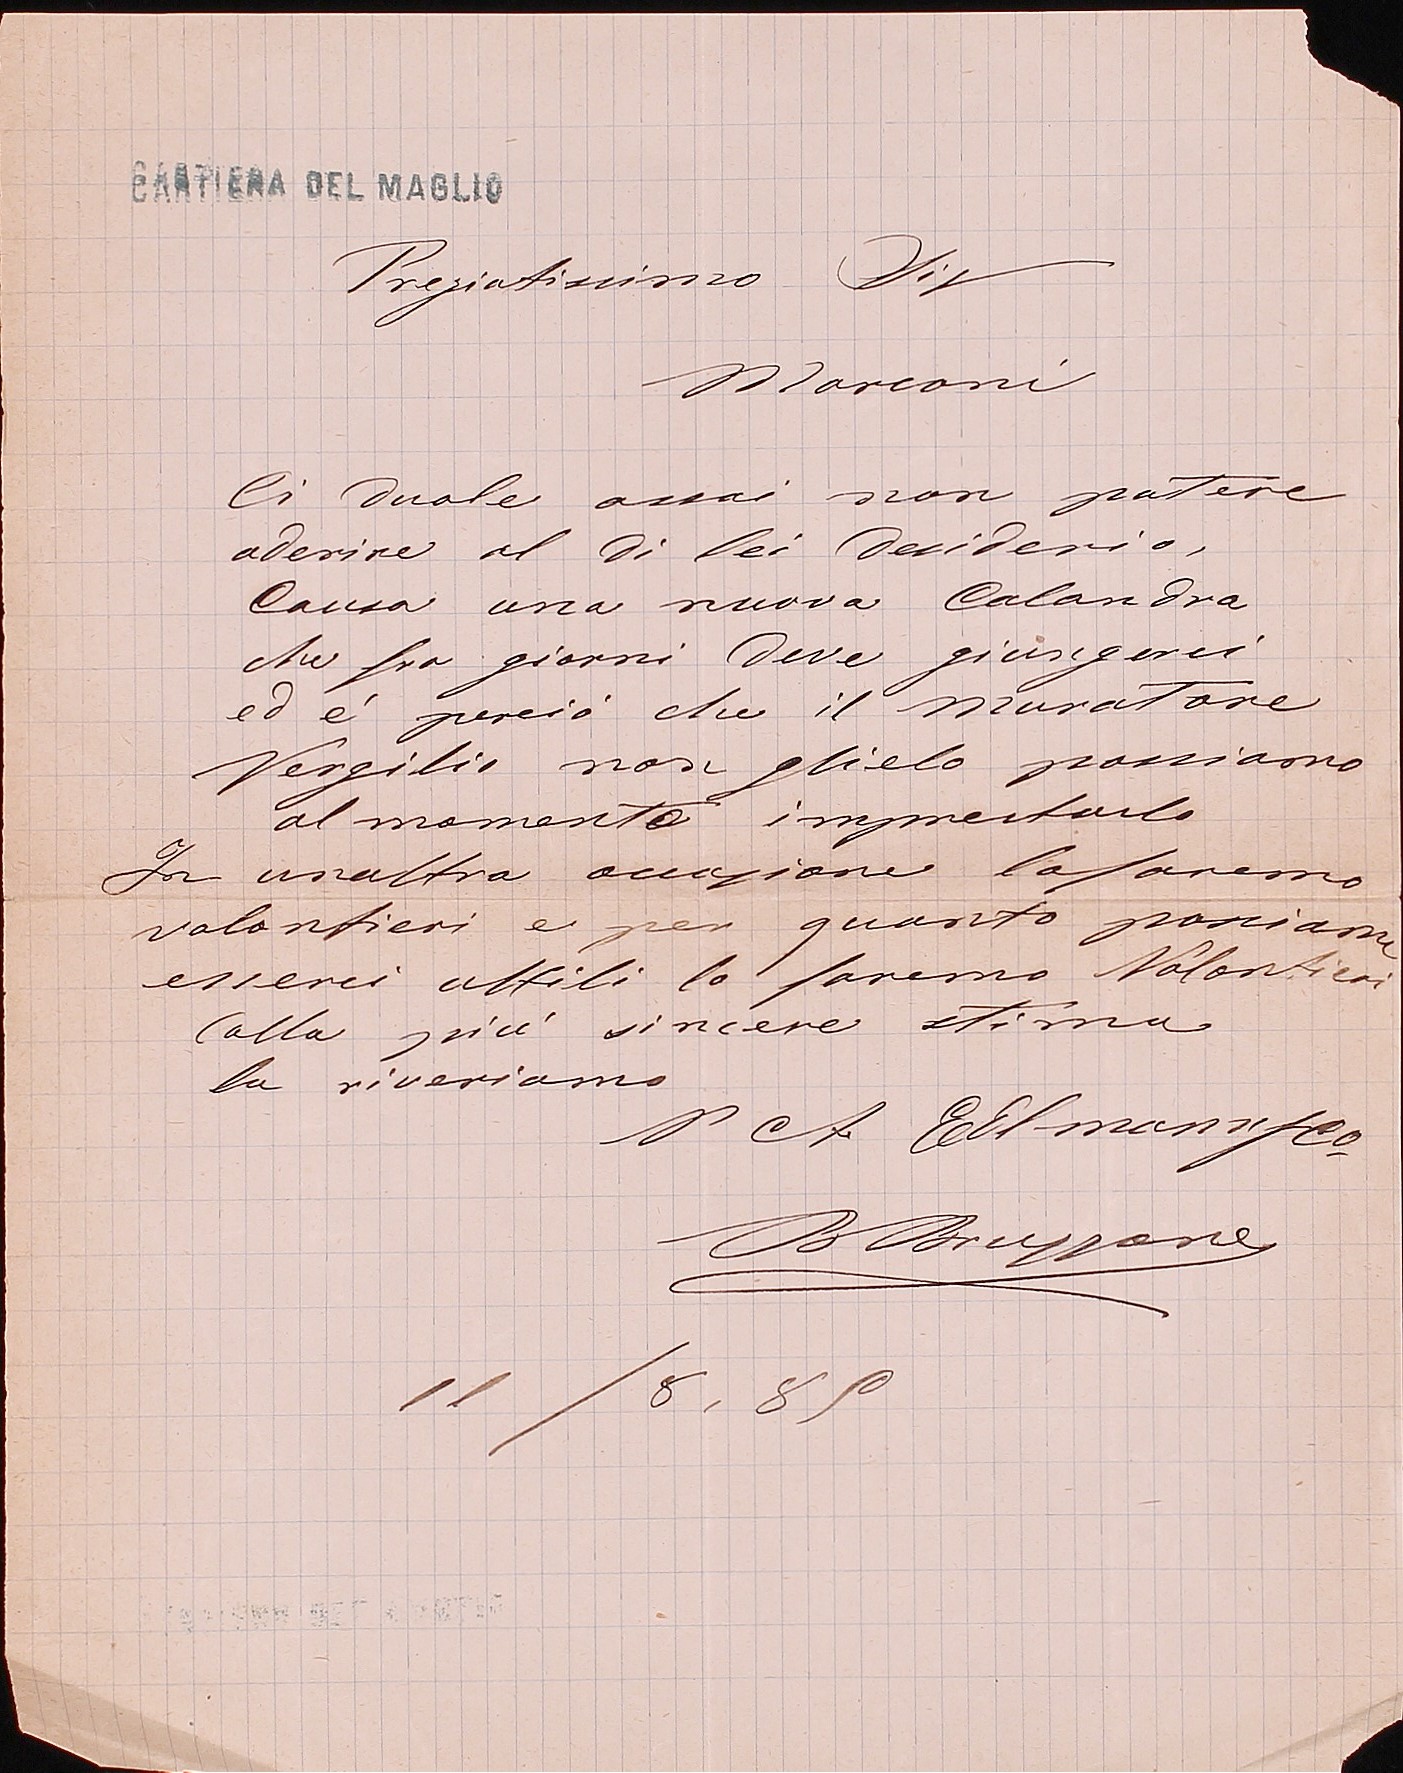 CARTIERA DEL MAGLIO
Pregiatissimo Sig
Marconi
Ci duole assai non potere
aderire al di lei desiderio,
Causa una nuova Calandra
che fra giorni deve giungerci
ed é perció che il muratore
Vergilio non glielo possiamo
al momento imprestarlo
In unaltra occazione lo faremo
volontieri e per quanto possiamo
esserci uttili lo faremo Volontieri
Colla piú sincere stima
la riveriamo
P A Edlmann & Co
B Bruppone
11/8, 89